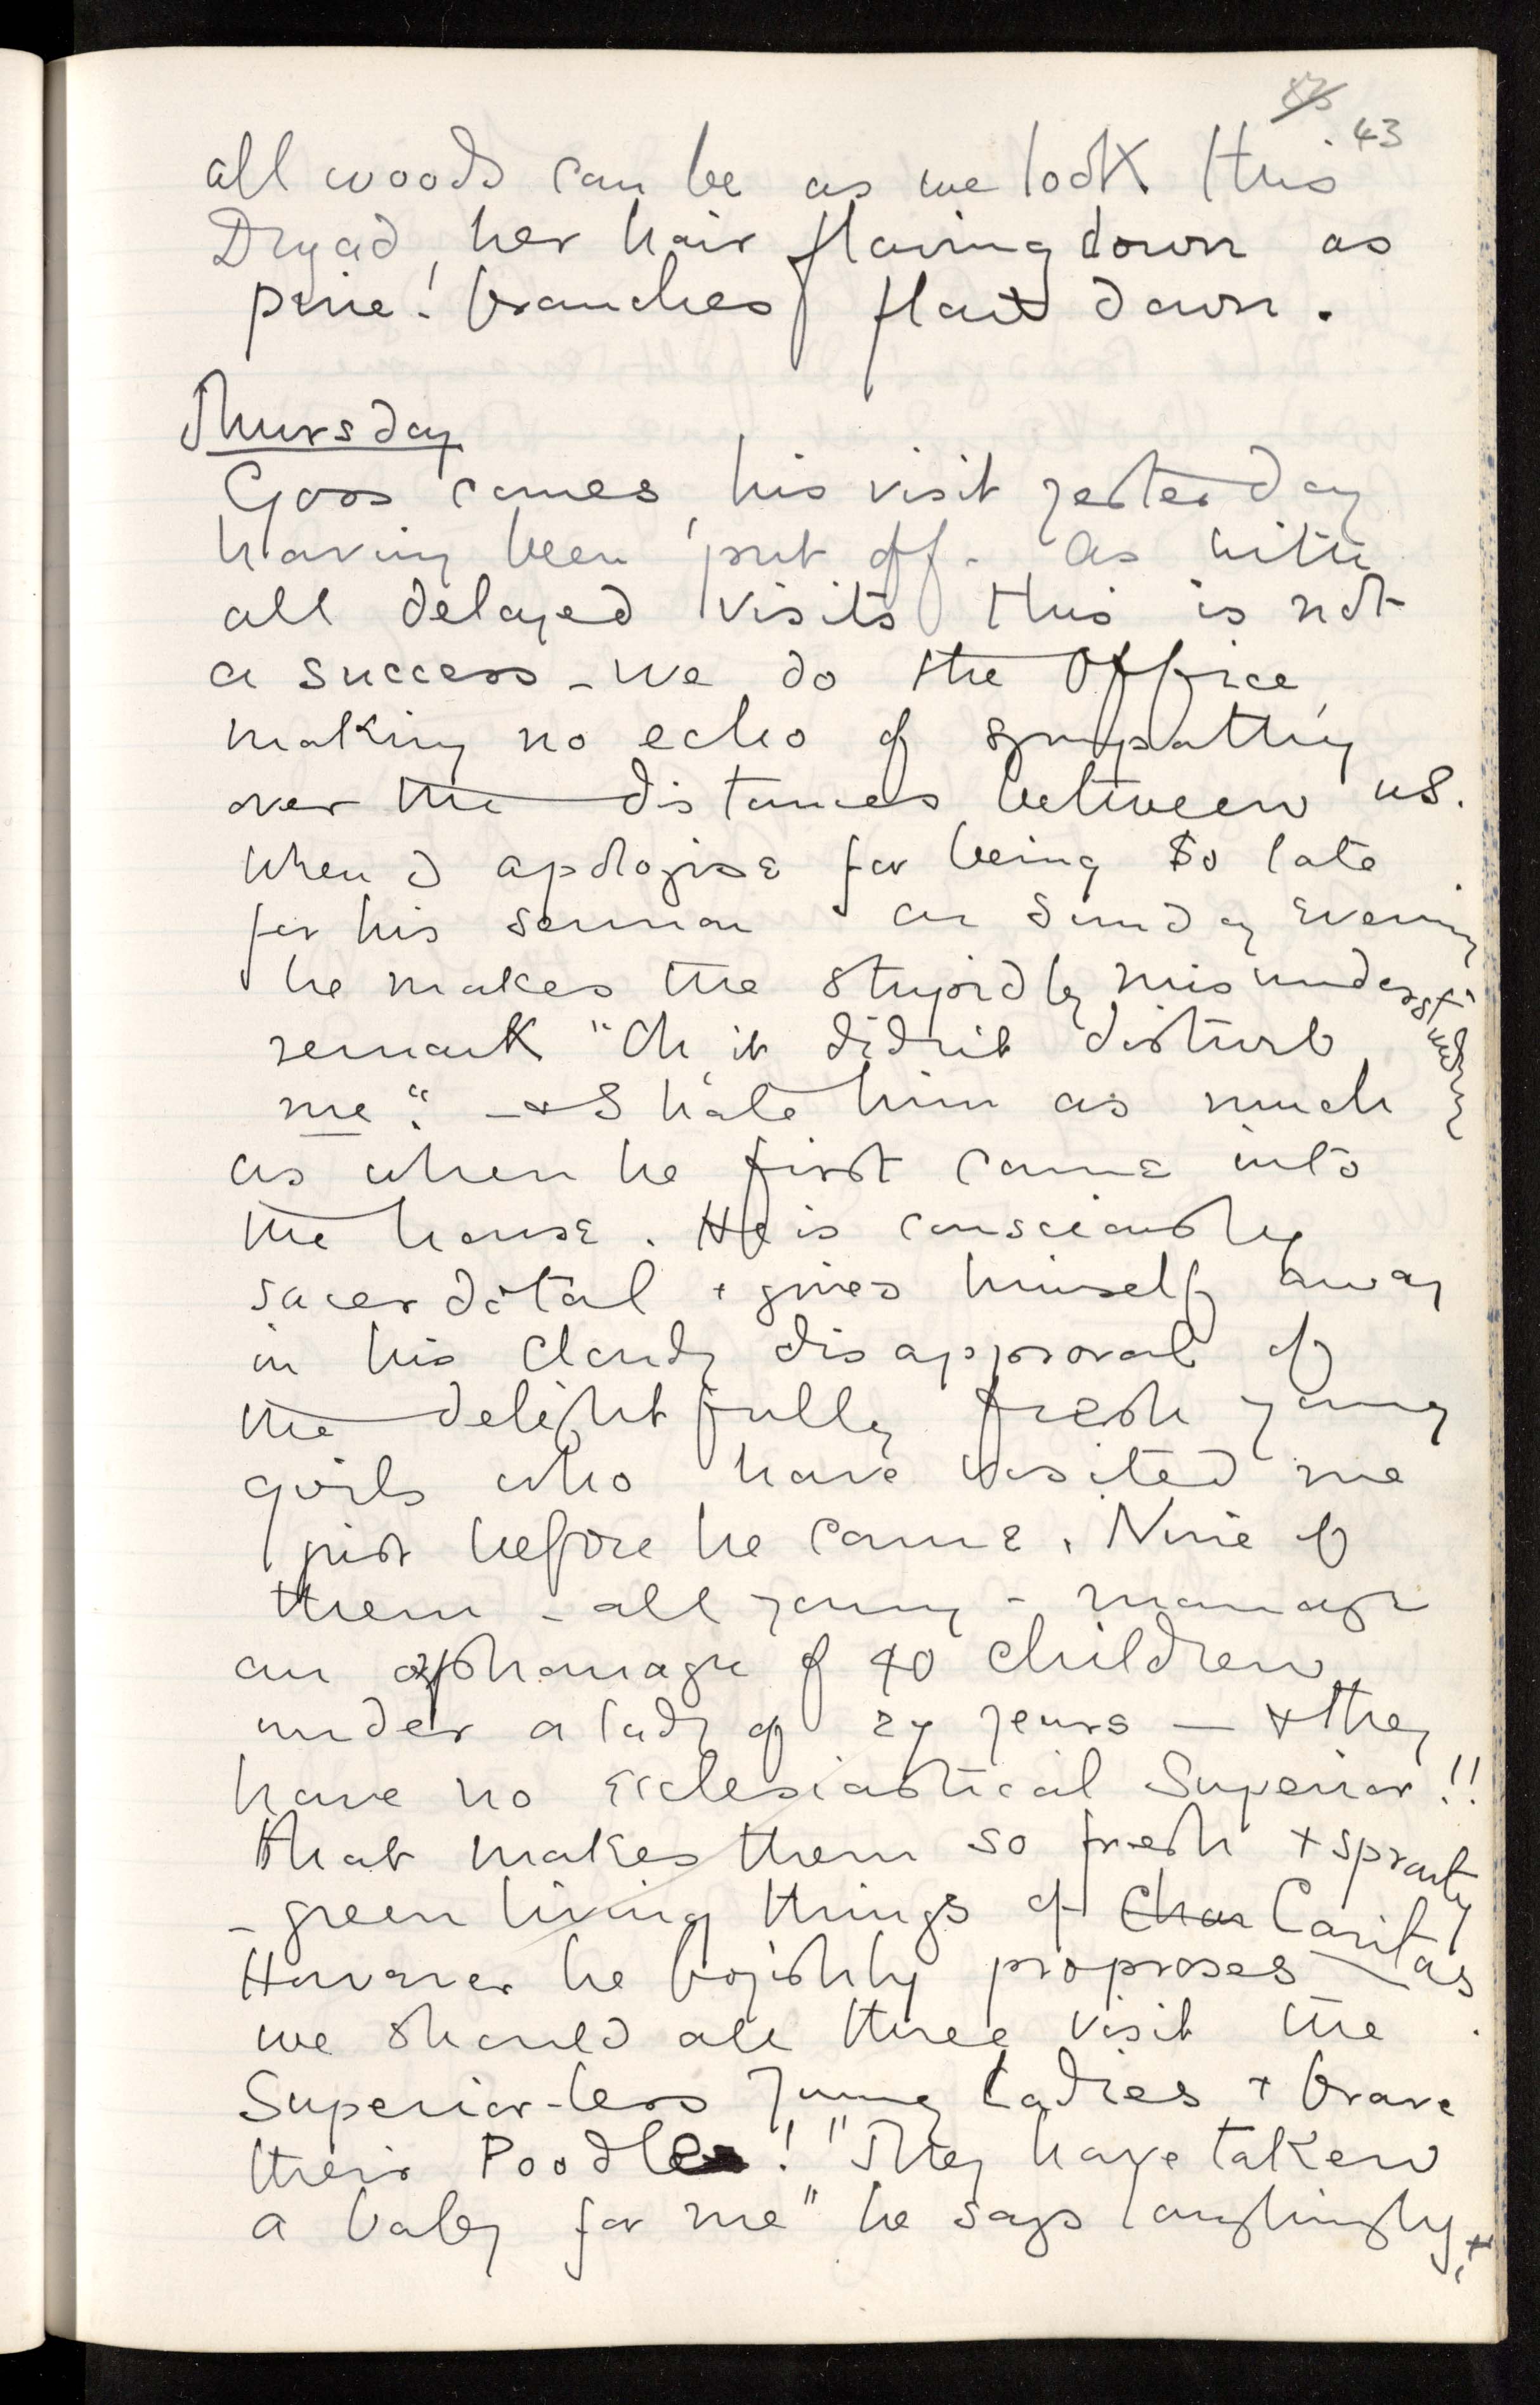 43
all woods can be as we look this
Dryad, her hair flowing down as
pine! branches flow down.
Thursday
Goss comes, his visit yesterday
having been put off. As with
all delayed visits this is not
a success - we do the Office,
making no echo of sympathy
over the distances between us.
When I apologise for being so late
for his sermon on Sunday Evening
he makes the stupidly misunderstanding
remark "Oh, it didn't disturb
me". - & I hate him as much
as when he first came into
the house. He is consciously
sacerdotal & gives himself away
in his cloudy disapproval of
the delightfully fresh young
girls who have visited me
just before he came. Nine of
them - all young - manage
an orphanage of 40 children
under a lady of 27 years — & they
have no Ecclesiastical Superior!!
That makes them so fresh & sprouty
- green living things of Char Caritas
However he boyishly proposes
we should all three visit the
Superior-less Young Ladies & brave
their Poodle! "They have taken
a baby for me" he says laughingly, &